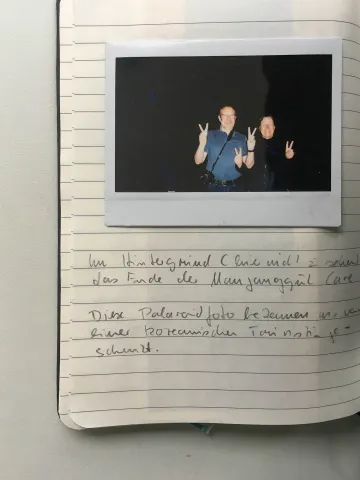 Im Hintergrund (hier nicht zu sehen
das Ende der Manjanggul Cave
Diese Polaroidfoto bekamen wir von
einer koreanischen Touristin ge-
schenkt.